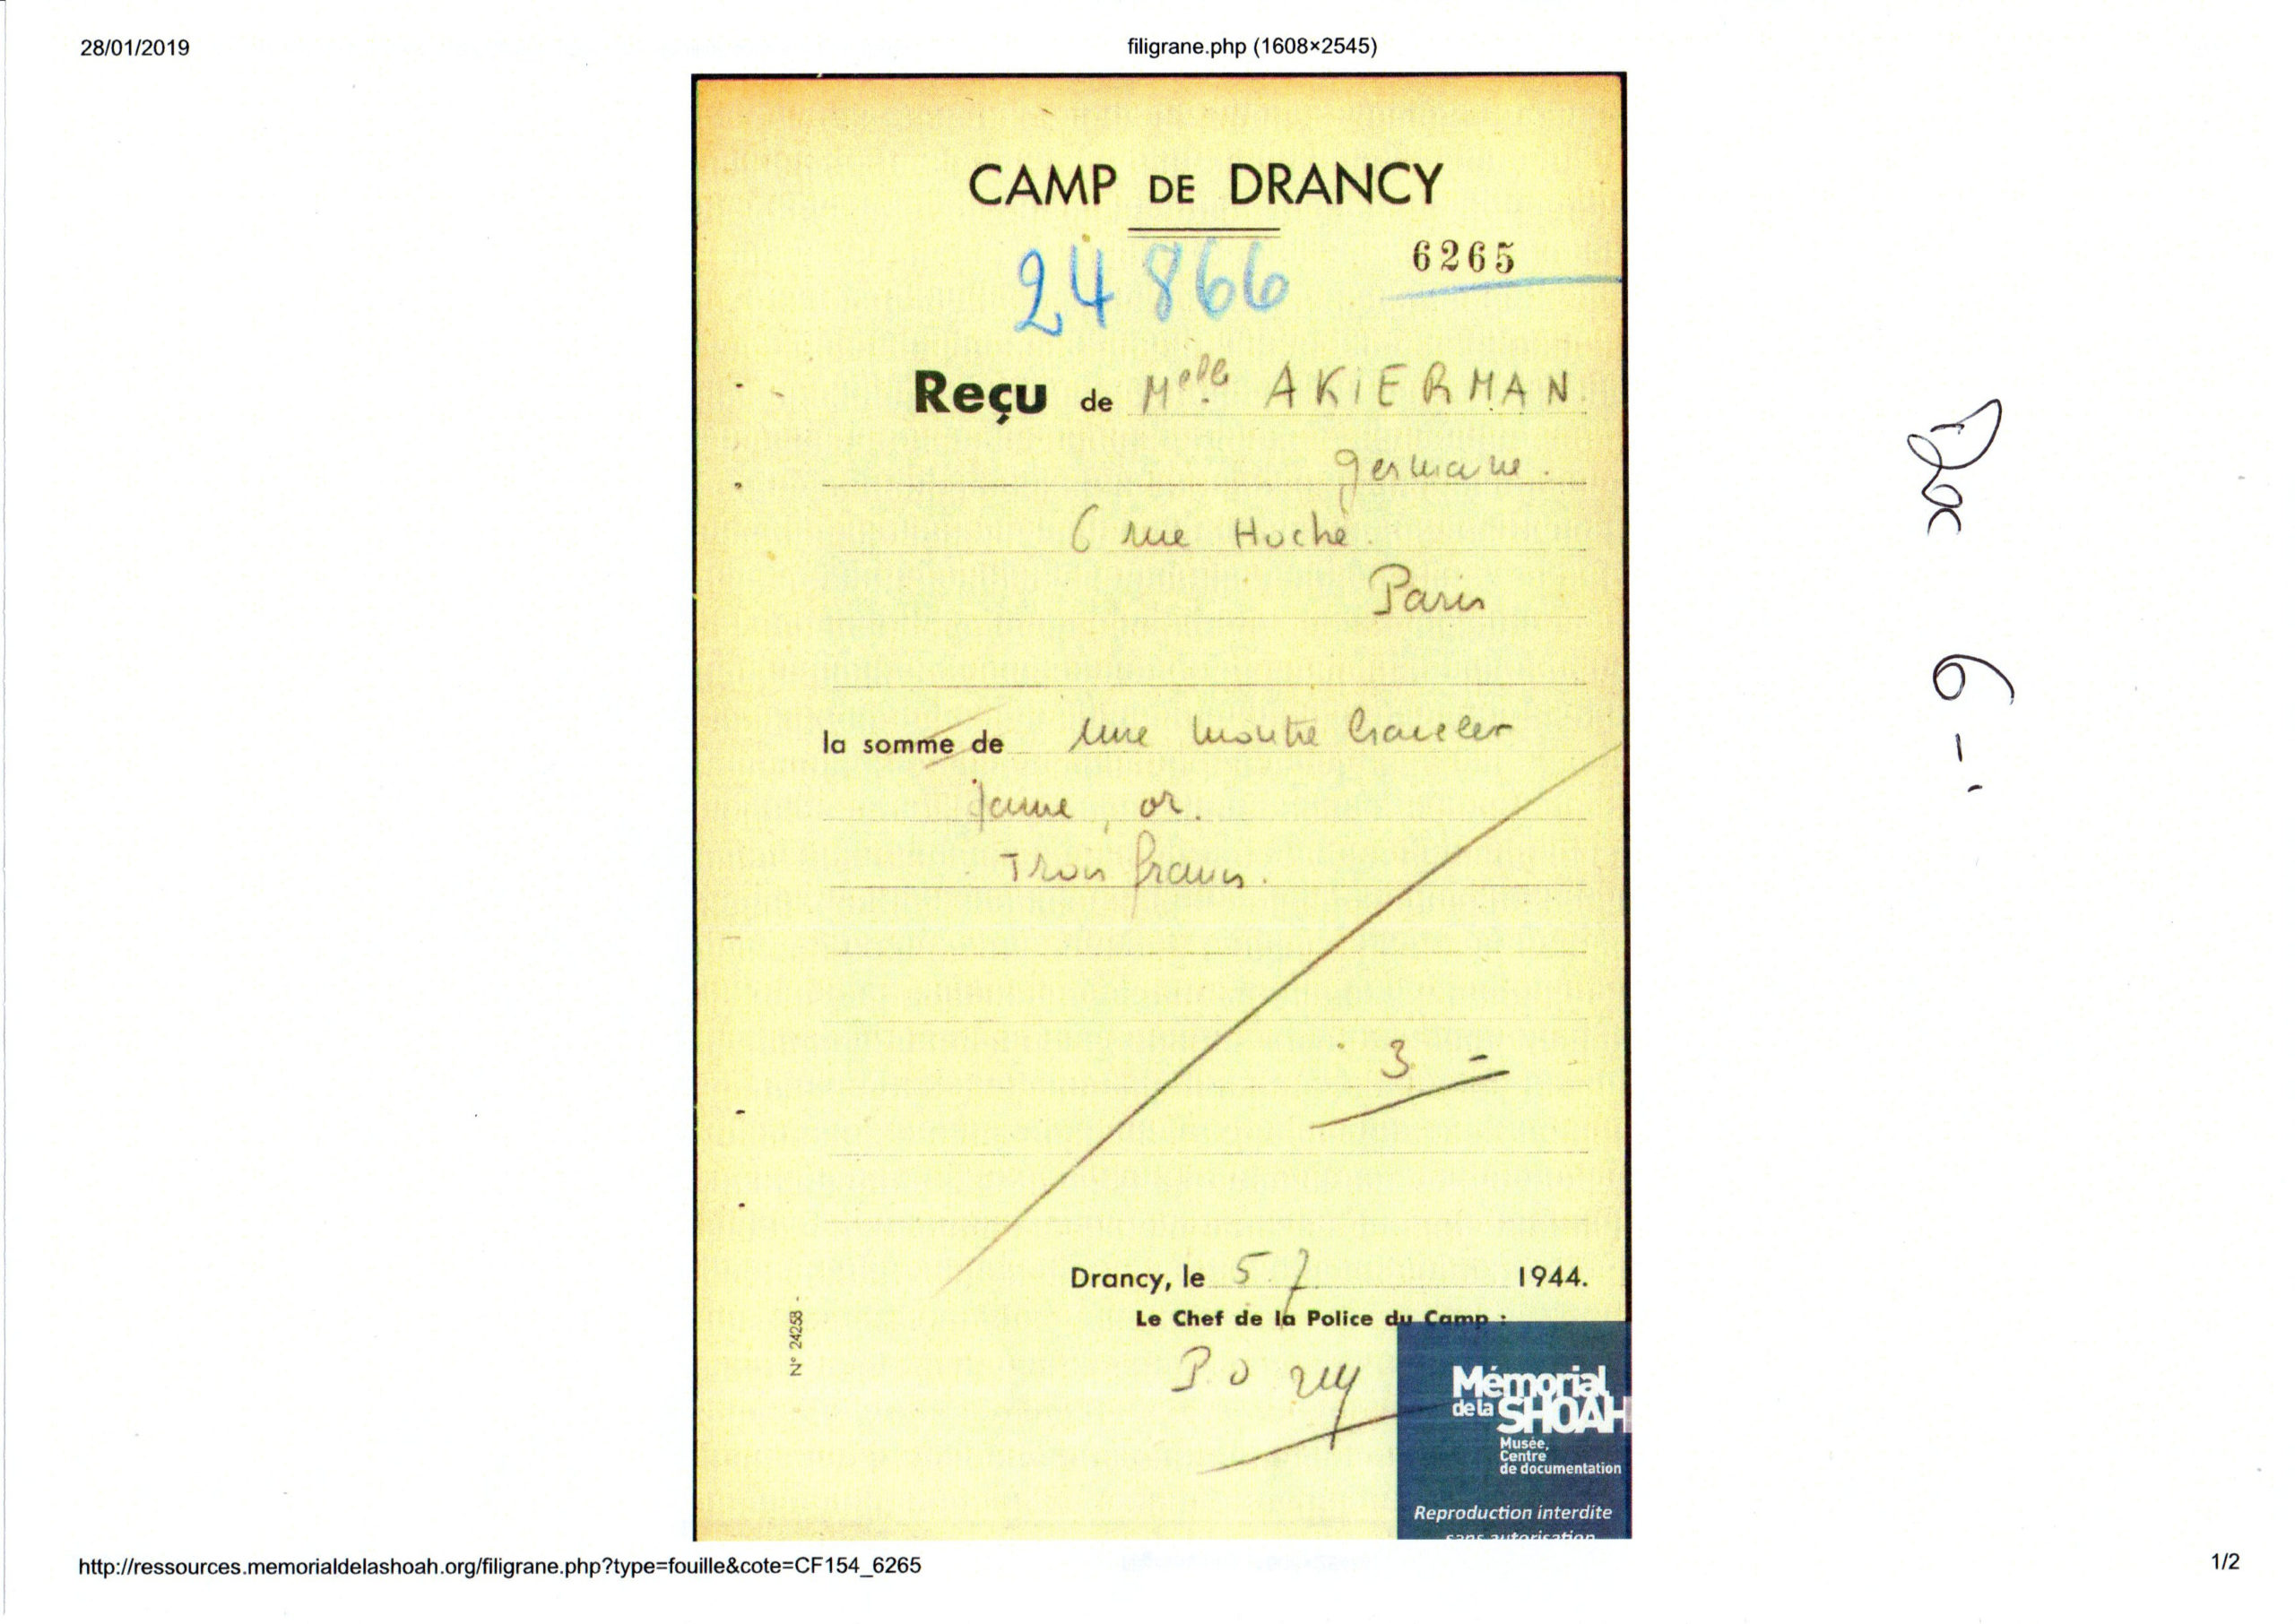 28/01/2019
filigrane.php (1608×2545)
CAMP DE DRANCY
24866
6265
Reçu de Melle AKIERMAN.
germaine.
6 rue Hoche.
Paris
la somme de une montre bracelet
jaune, or.
Trois francs.
3 -
Drancy, le 5.7 1944.
Le Chef de la Police du Camp :
P.O
N° 24258 -
Mémorial
de la SHOAH
Musée,
Centre
de documentation
Reproduction interdite
sans autorisation
http://ressources.memorialdelashoah.org/filigrane.php?type=fouille&cote=CF154_6265
1/2